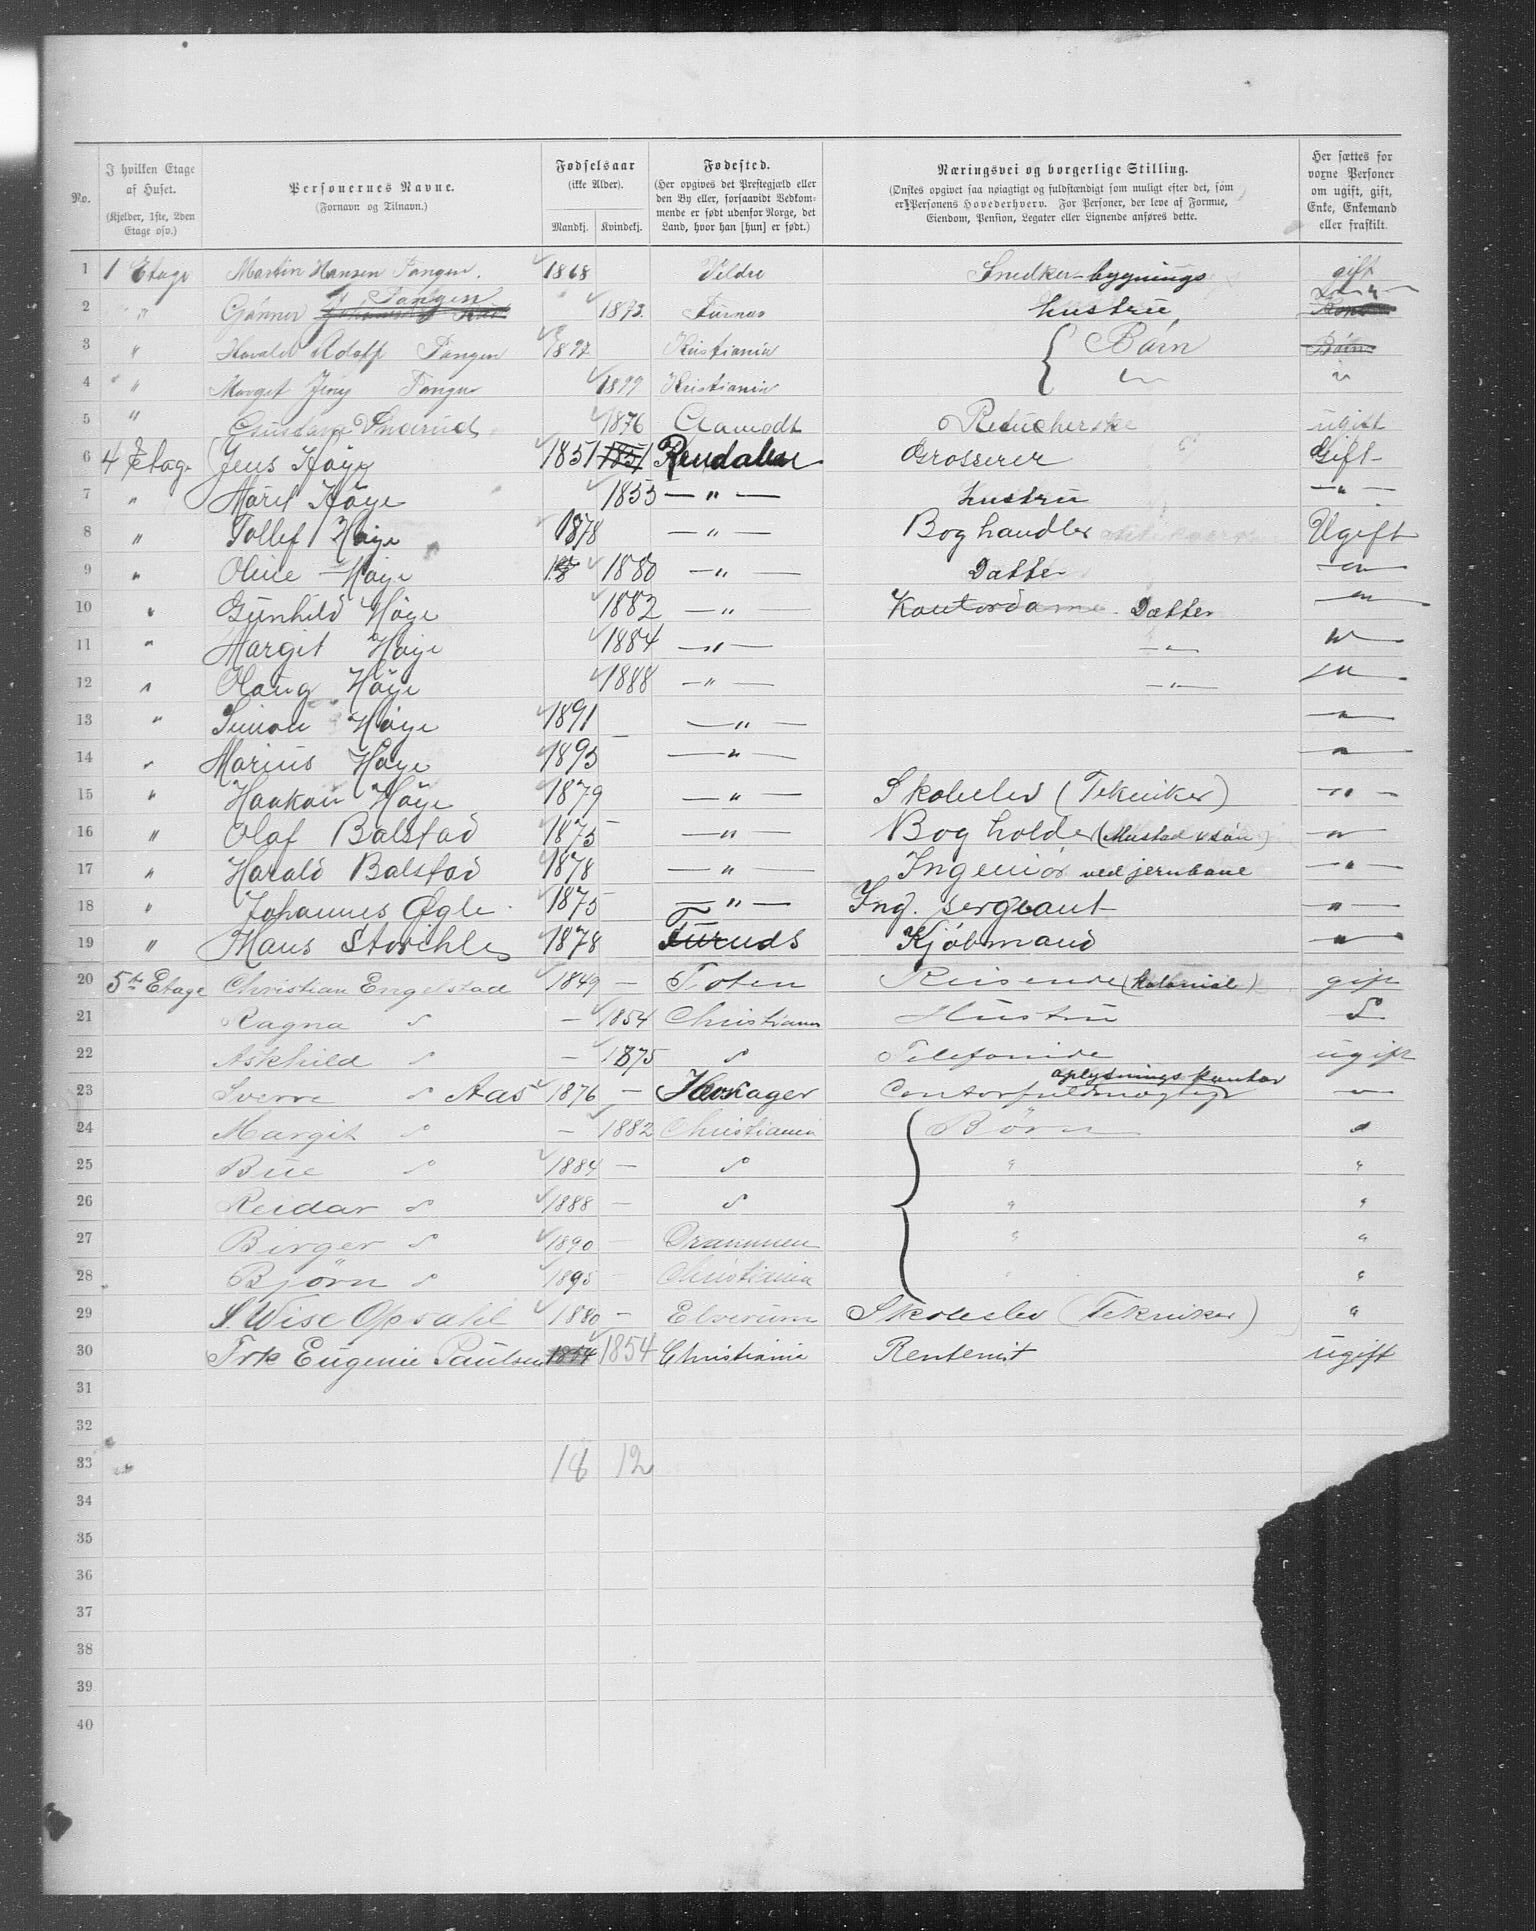 No.	I hvilken Etage af Huset. (Kjelder, 1ste, 2den Etage osv.)	Personernes Navne. (Fornavn og Tilnavn.)	Fødselsaar (ikke Alder). Mandkj. Kvindekj.	Fødested. (Her opgives det Prestegjæld eller den By eller, forsaavidt Vedkommende er født udenfor Norge, det Land, hvor han [hun] er født.)	Næringsvei og borgerlige Stilling. (Ønskes opgivet saa nøiagtigt og fuldstændigt som muligt efter det, som er Personens Hovederhverv. For Personer, der leve af Formue, Eiendom, Pension, Legater eller Lignende anføres dette.)	Her sættes for voxne Personer om ugift, gift, Enke, Enkemand eller fraskilt.
1 1 Etage Martin Hansen Tangen. 1868 Veldre Snedker-bygnings gift
2 " Tangen 1873 Furnes hustru "
3 " Adolf Tangen 1897 Kristiania { Børn Børn
4 " Margit Jeny Tangen 1899 Kristiania " "
5 " 1876 Retucherske ugift
6 4 Etage Jens Høye 1851 1851 Rendalen Grosserer Gift
7 " Marit Høye 1855 — " — hustru — " —
8 " Tollef Høye 1878 — " — Boghandler Ugift
9 " Oline Høye 18 1880 — " — Datter — " —
10 " Gunhild Høye 1882 — " — Kontordame. Datter — " —
11 " Margit Høye 1884 — " — — " — "
12 " Olaug Høye 1888 — " — — " — "
13 " Simon Høye 1891 — " — — " —
14 " Marius Høye 1893 — " — — " —
15 " Haakon Høye 1879 — " — Skoleelev (Tekniker) — " —
16 " Olaf Balstad 1875 — " — Bogholder (Mustad & søn) — " —
17 " Harald Balstad 1878 — " — Ingeniør ved jernbane — " —
18 " Johannes Øgle 1875 — " — Ing. sergeant — " —
19 " Hans Storihle 1878 Kjøbmand — " —
20 5te Etage Christian Engelstad 1849 — Toten Reisende (kolonial) gift
21 Ragna d — 1854 Christiania Hustru d
22 Askhild d — 1875 d Telefonide ugift
oplysnings kontor
23 Sverre d Aas 1876 — Contorfuldmægtig "
24 Margit d — 1882 Christiania { Børn "
25 Bue d 1884 — d " "
26 Reidar d 1888 — d " "
27 Birger d 1890 — Drammen " "
28 Bjørn d 1895 — Christiania " "
29 S. Wise Opsahl 1880 — Elverum Skoleelev (Tekniker) "
30 Frk Eugenie Paulsen 1854 1854 Christiania Rentenist ugift
31
32
33 18 12
34
35
36
37
38
39
40